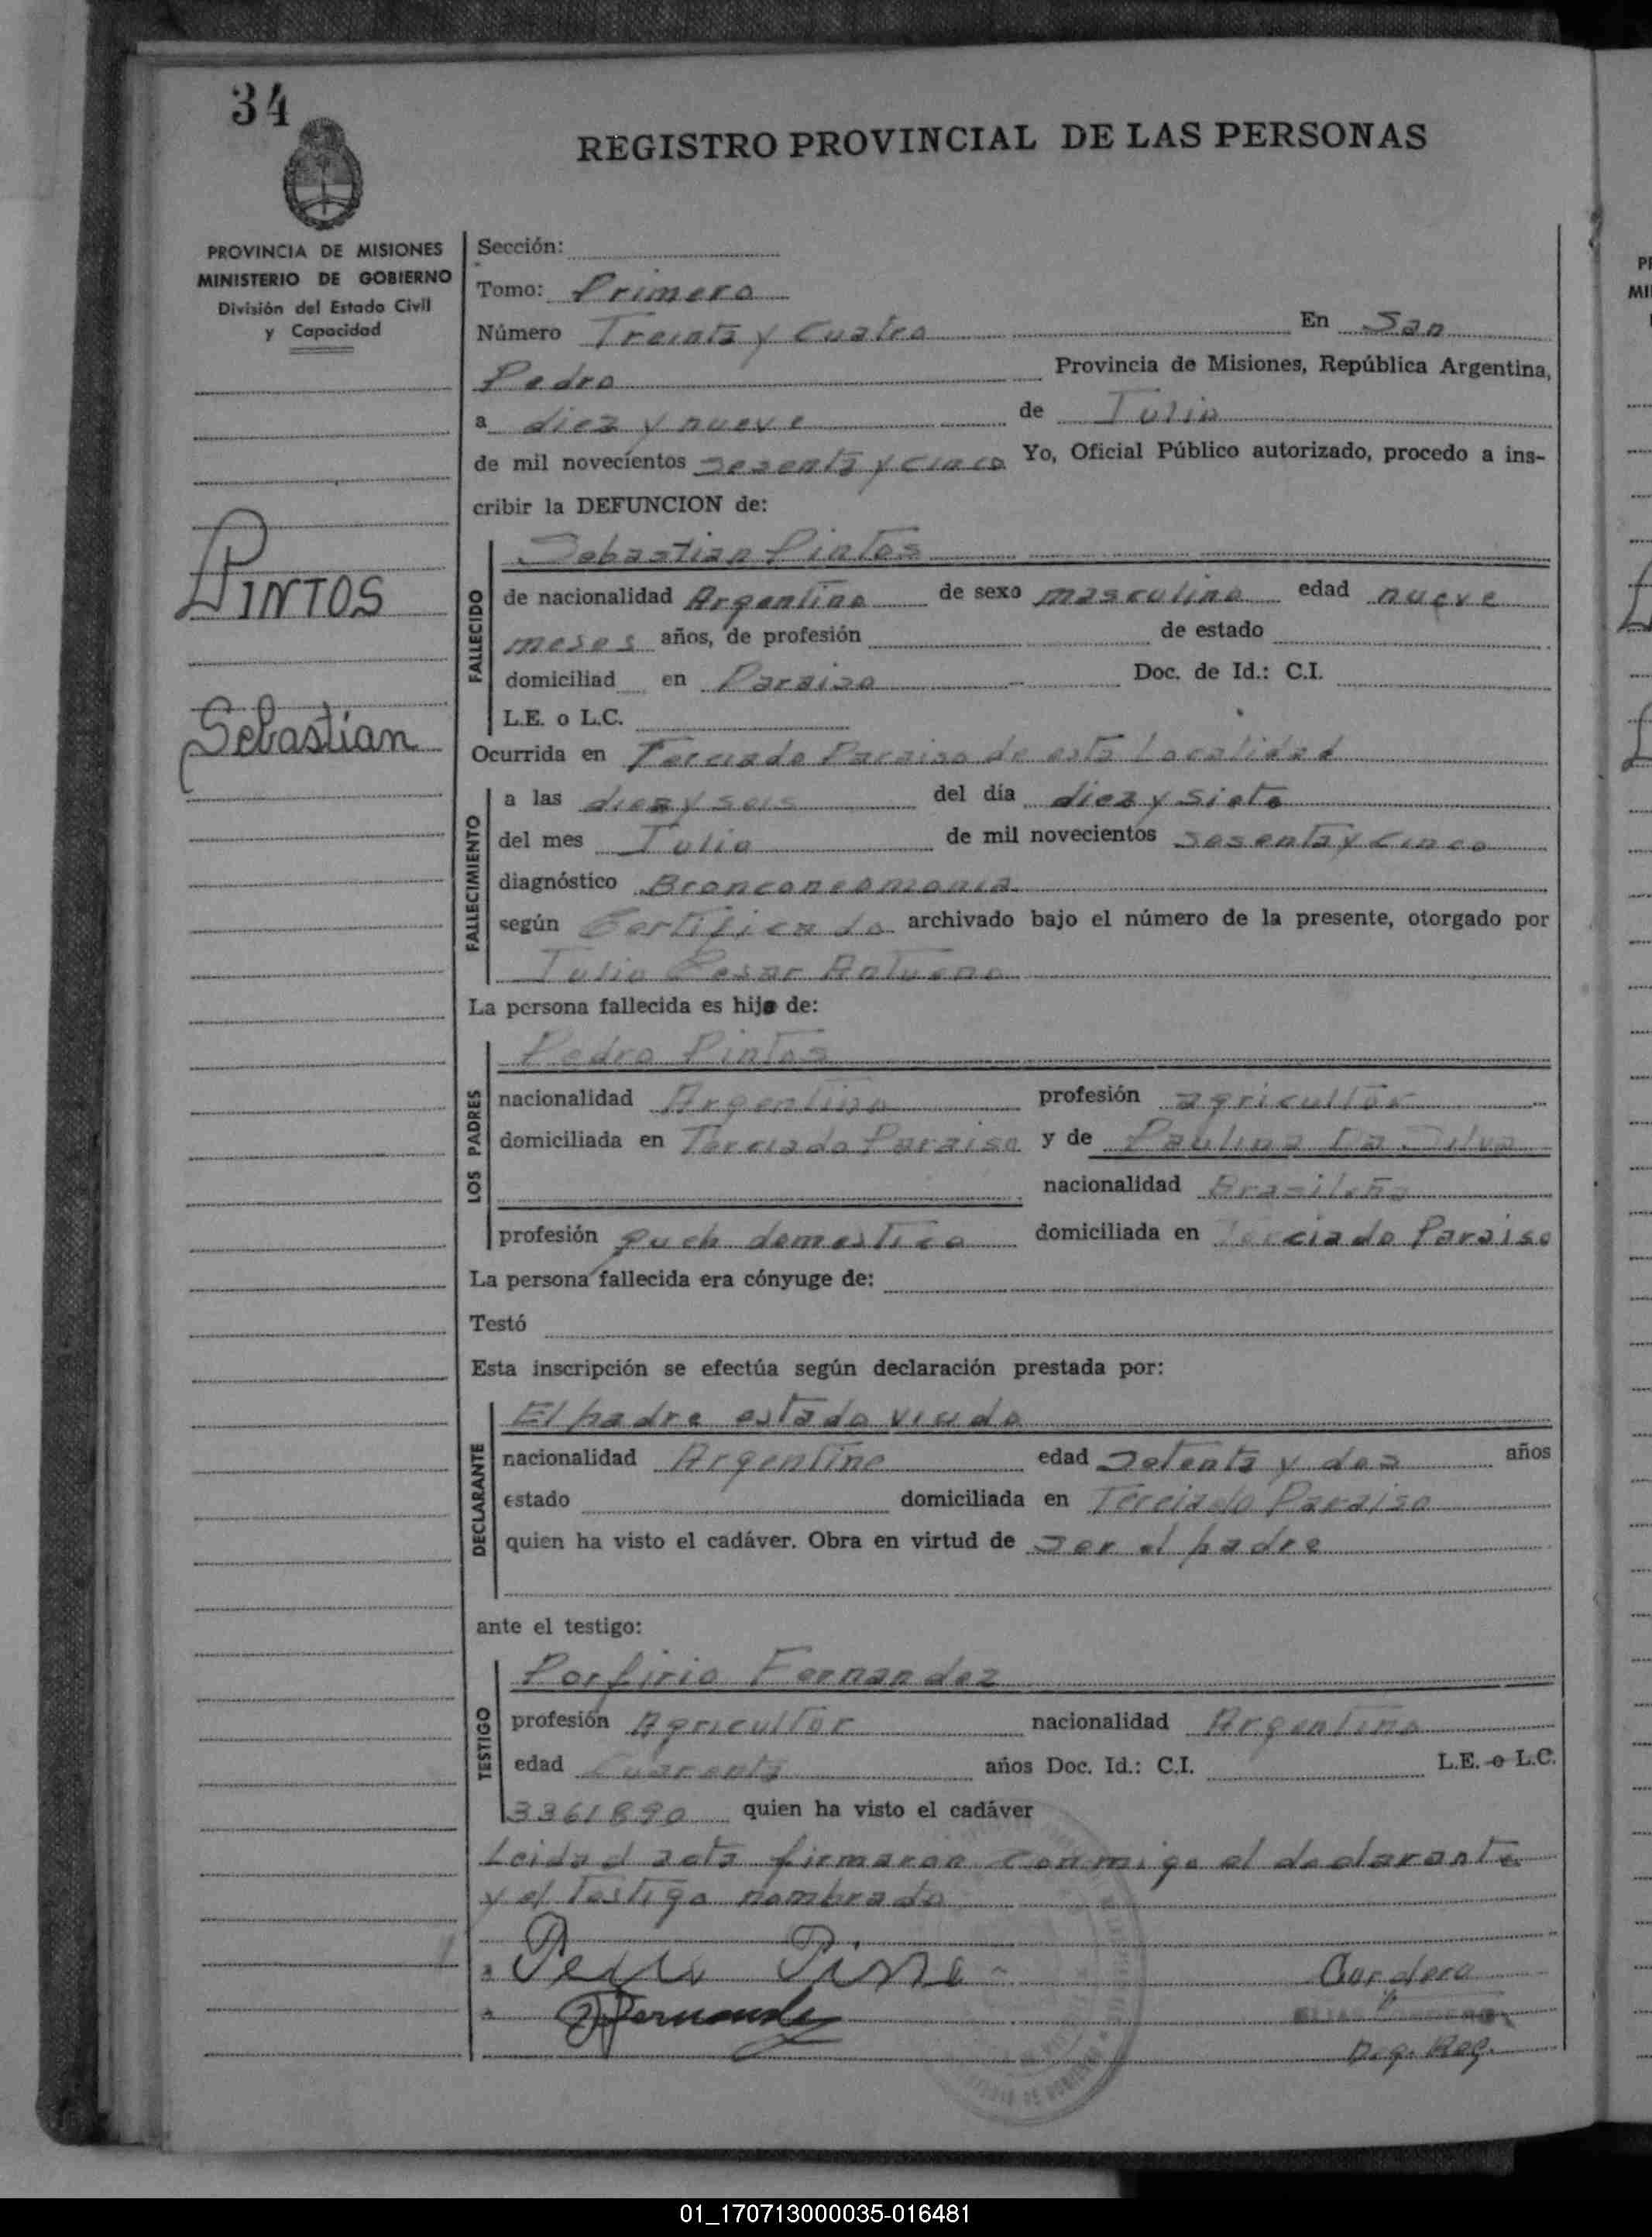 34
REGISTRO PROVINCIAL DE LAS PERSONAS
PROVINCIA DE MISIONES
MINISTERIO DE GOBIERNO
División del Estado Civil
y Capacidad
PINTOS
Sebastian
Sección:
Tomo: Primero
Número Treinta y Cuatro En San
Pedro Provincia de Misiones, República Argentina,
a diez y nueve de Julio
de mil novecientos sesenta y cinco Yo, Oficial Público autorizado, procedo a ins-
cribir la DEFUNCION de:
FALLECIDO
Sebastian Pintos
de nacionalidad Argentino de sexo masculino edad nueve
meses años, de profesión de estado
domiciliad en Paraiso Doc. de Id.: C.I.
L.E. o L.C.
Ocurrida en Terciado Paraiso de esta Localidad
FALLECIMIENTO
a las diez y seis del día diez y siete
del mes Julio de mil novecientos sesenta y cinco
diagnóstico Bronconeomonia
según Certificado archivado bajo el número de la presente, otorgado por
Julio Cesar
La persona fallecida es hijo de:
LOS PADRES
Pedro Pintos
nacionalidad Argentino profesión agricultor
domiciliada en Terciado Paraiso y de Paulina Da Silva
nacionalidad Brasileña
profesión domiciliada en Terciado Paraiso
La persona fallecida era cónyuge de:
Testó
Esta inscripción se efectúa según declaración prestada por:
DECLARANTE
El padre estado viudo
nacionalidad Argentino edad Setenta y dos años
estado domiciliada en Terciado Paraiso
quien ha visto el cadáver. Obra en virtud de ser el padre
ante el testigo:
TESTIGO
Porfirio Fernandez
profesión Agricultor nacionalidad Argentino
edad Cuarenta años Doc. Id.: C.I. L.E. o L.C.
3361890 quien ha visto el cadáver
Leida el acta firmaron conmigo el declarante
y el testigo nombrado
Cordero
Fernandez
ELIAS CORDERO
Reg.
01_170713000035-016481